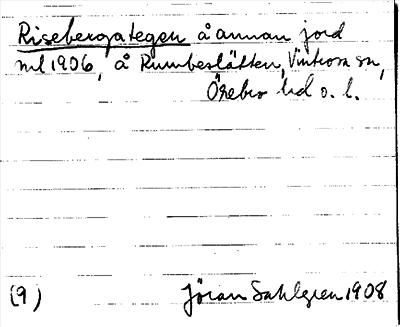 Risebergategen å annan jord
ml 1906, å Rumbeslätten, Vintrosa sn,
Örebro hd o. l.
(9) Jöran Sahlgren 1908